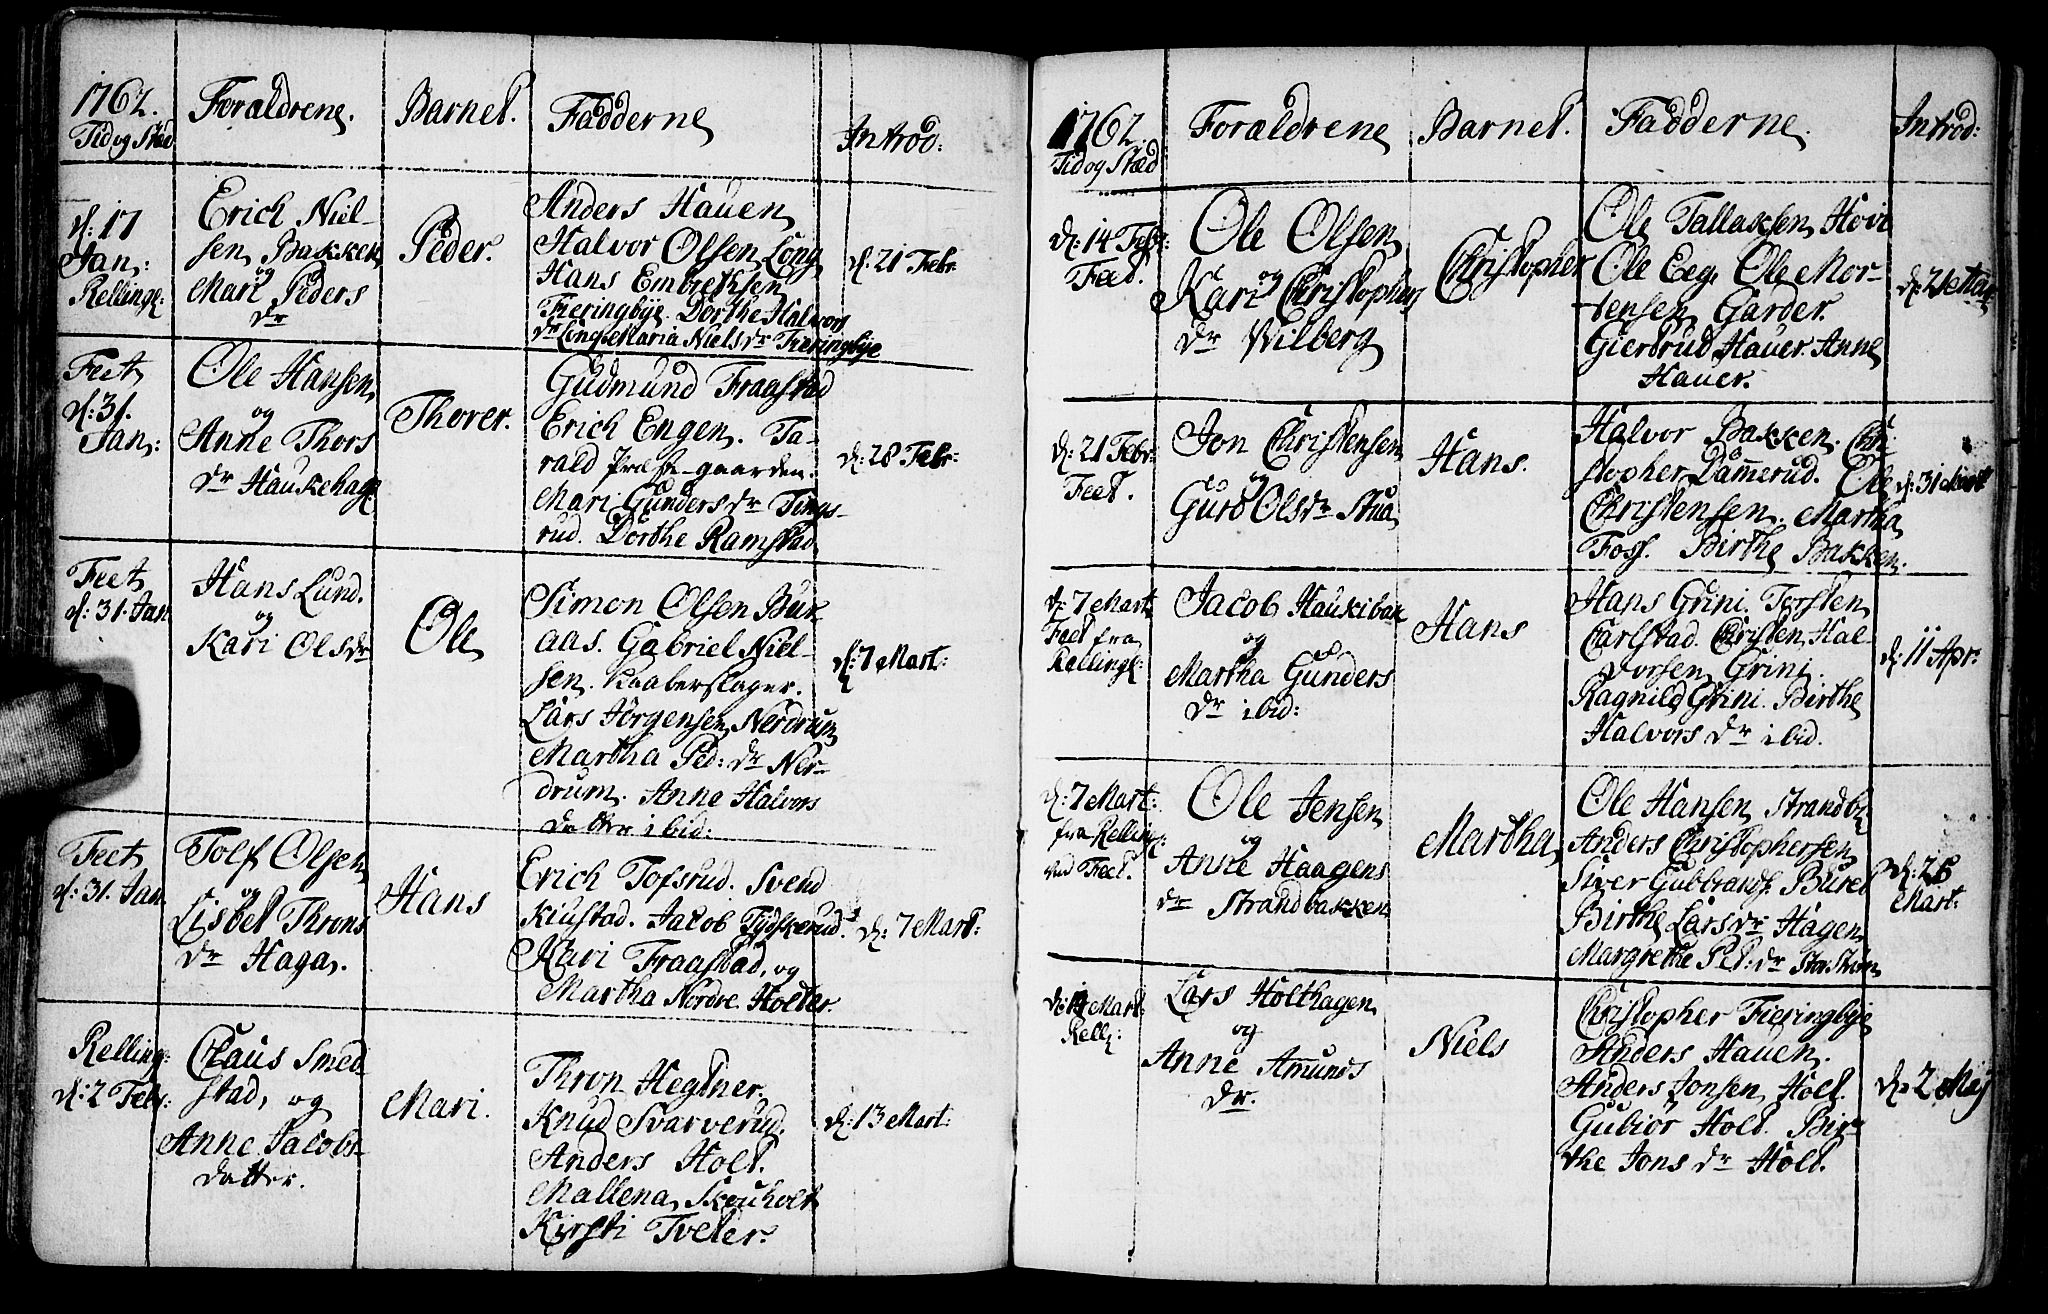 1762.
Tid og Stæd
Forældrene.
Barnet.
Fadderne
Introd:
d: 17
Jan:
Relling:
Erich Niel-
sen Bakken
og
Mari Peders
dr
Peder.
Anders Hauen
Halvor Olsen Løng
Hans Embretsen
Fieringbye. Dorthe Halvors
dr Løng Maria Niels dr Fieringbye
d: 21 Febr.
Feet
d: 31.
Jan:
Ole Hansen
og
Anne Thors
dr Haukehage
Thorer.
Gudmund Fraastad
Erich Engen. Ta-
rald Præste-gaarden.
Mari Gunders dr Tings-
rud. Dorthe Ramstad
d: 28 Febr:
Feet
d: 31. Jan
Hans Lund.
og
Kari Olsdr
Ole
Simon Olsen Bur-
aas. Gabriel Niel-
sen. Kaaberslager.
Lars Jørgensen Nerdrum
Martha Ped: dr Ner-
drum. Anne Halvors
datter ibid:
d: 7 Mart:
Feet
d: 31. Jan
Tolf Olsen
og
Lisbet Throns
dr Haga.
Hans
Erich Tofsrud. Svend
Kiustad. Jacob Tydskerud.
Kari Fraastad, og
Martha Nordre Holter.
d: 7 Mart:
Relling:
d: 2 Febr:
Claus Smed
stad, og
Anne Jacobs-
datter.
Mari.
Thron Hegtner.
Knud Svarverud.
Anders Holt.
Mallena Skouholt
Kirsti Tveter.
d: 13 Mart:
1762.
Tid og Stæd
Forældrene
Barnet.
Fadderne.
Introd:
d: 14 Febr:
Feet.
Ole Olsen
og
Kari Christophers
dr Wilberg
Christopher
Ole Tallaksen Hovi
Ole Eeg. Ole Mor-
tensen Garder.
Giertrud Hauer. Anne
Hauer.
d: 21 Mart
d: 21 Febr:
Feet.
Jon Christensen
og
Guro Olsdr Stua
Hans.
Halvor Bakken. Chri-
stopher Dammerud. Ole
Christensen. Martha
Foss. Birthe Bakken.
d: 31 Mart
d: 7 Mart
Feet fra
Relling:
Jacob Haukibak
og
Martha Gunders
dr ibid:
Hans
Hans Grini. Torsten
Carlstad. Christen Hal-
vorsen Grini.
Ragnild Grini. Birthe
Halvors dr ibid.
d: 11 Apr:
d: 7 Mart:
fra Relling:
ved Feet.
Ole Jensen
og
Anne Haagens
dr Strandbakken
Martha
Ole Hansen Strandb:
Anders Christophersen
Siver Gubbrands. Buret
Birthe Lars dr Hagen
Margrethe Pet: dr Storstrøm
d: 28
Mart:
Mart
Rell:
Lars Holthagen
og
Anne Amunds
dr.
Niels
Christopher Fieringbye
Anders Hauen.
Anders Jonsen Holt.
Gubiør Holt. Bir-
the Jons dr Holt.
d: 2 Maj